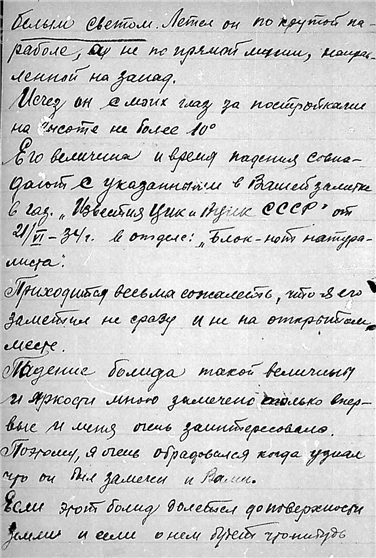 белым светом. Летел он по крутой па-
раболе, а не по прямой линии, направ-
ленной на запад.
Исчез он с моих глаз за постройками
на высоте не более 10°
Его величина и время падения совпа-
дают с указанными в Вашей заметке
в газ. „Известия ЦИК и ВЦИК СССР" от
21/VI-34г. в отделе: „Блок-нот натура-
листа".
Приходится весьма сожалеть, что я его
заметил не сразу и не на открытом
месте.
Падение болида такой величины
и яркости мною замечено только впер-
вые и меня очень заинтересовало.
Поэтому, я очень обрадовался когда узнал
что он был замечен и Вами.
Если этот болид долетел до поверхности
земли и если о нем будет что-нибудь